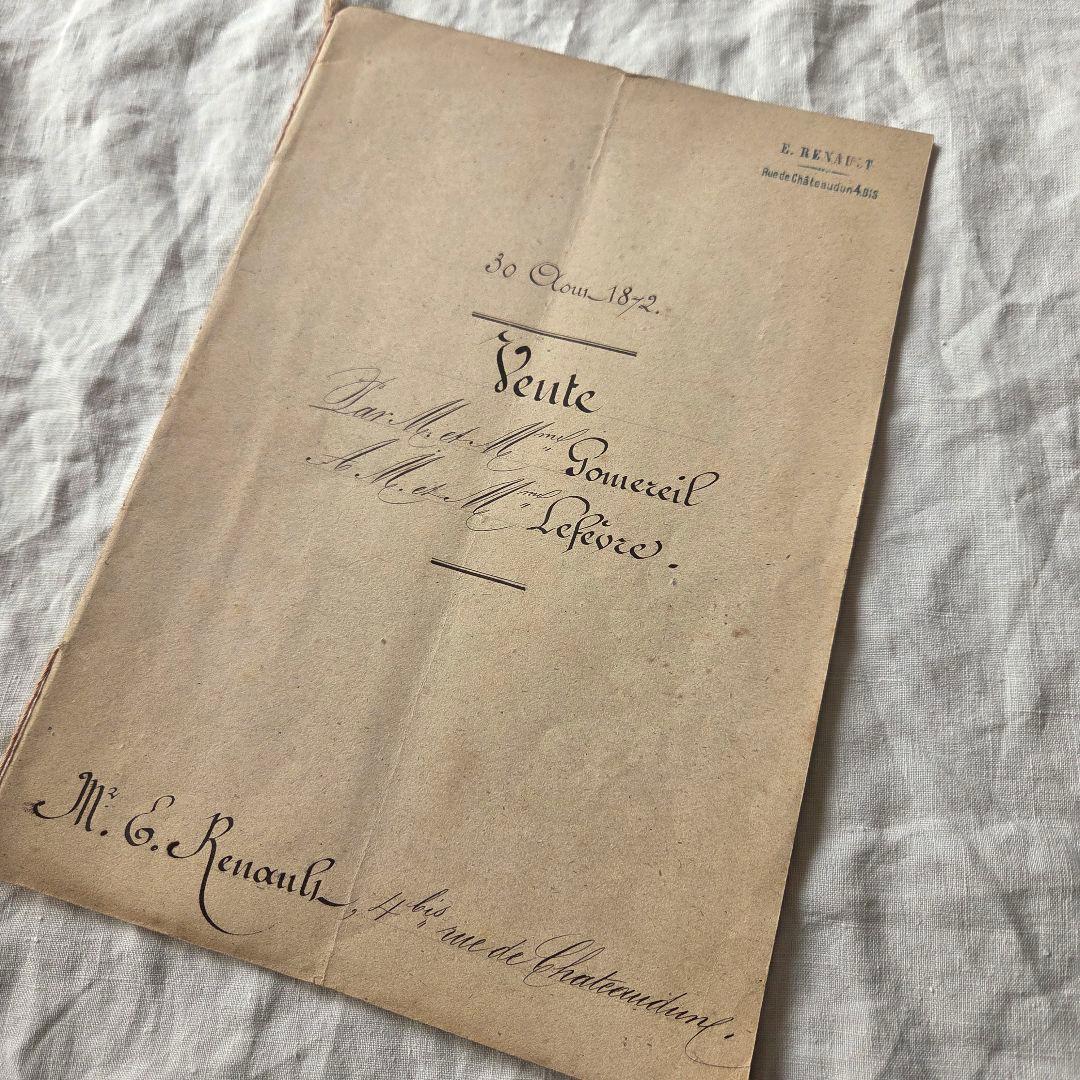 E. RENAULT
Rue de Châteaudun 4.BIS
30 Aout 1872.
Vente
Par M. et Mme Gomereil
A M. et Mme Lefèvre.
Mr. E. Renault, 4 bis rue de Chateaudun.